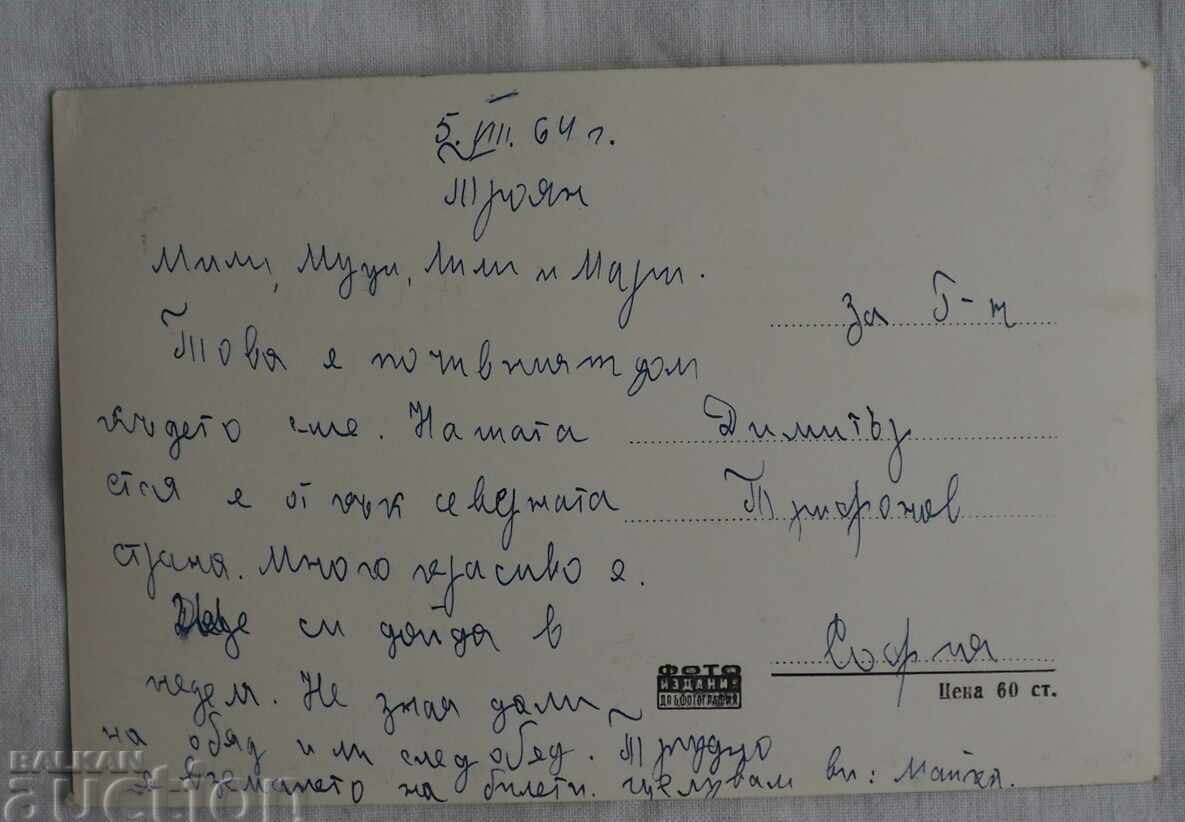 5. VIII. 64 г.
Троян
Мили, Муци, Лили и Маги.
Това е почивният дом
където сме. Нашата
стая е откъм северната
страна. Много красиво е.
ще си дойда в
неделя. Не зная дали
на обяд или след обяд. Трудно
е вземането на билети. Целувам ви: Майка.
за Г-н
Димитър
Трифонов
София
Цена 60 ст.
ФОТО
ИЗДАНИЯ
ДП БЪЛГ.ФОТОГРАФИЯ
BALKAN
auction